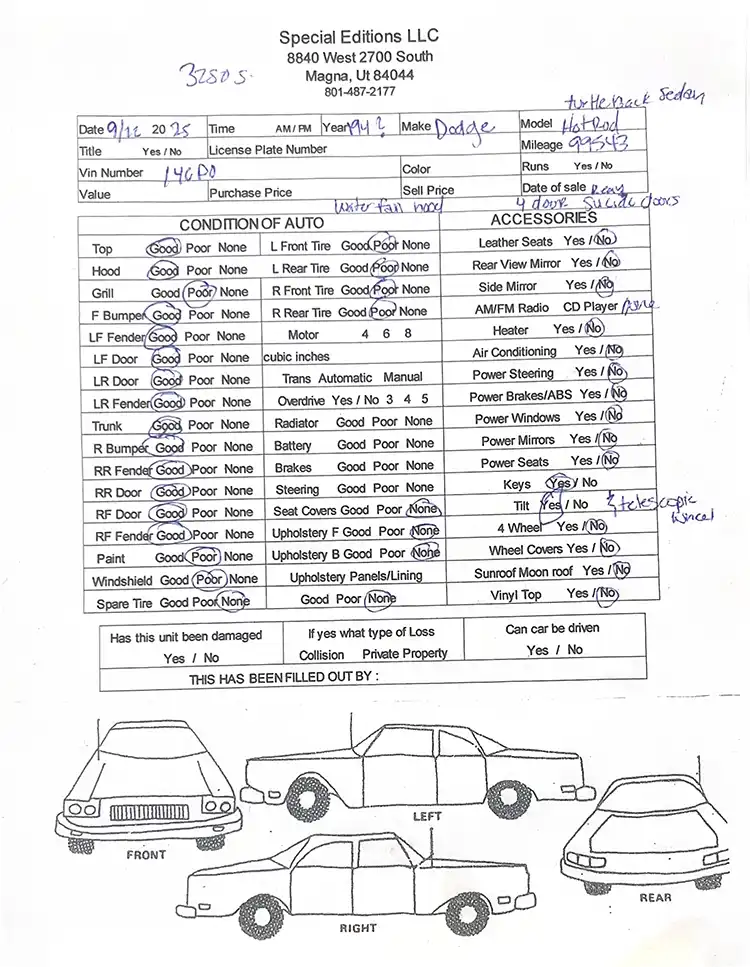 Special Editions LLC
8840 West 2700 South
Magna, Ut 84044
801-487-2177
3250 s.
turtleback Sedan
Date 9/12 2025 Time AM / PM Year 194? Make Dodge Model HotRod
Title Yes / No License Plate Number Mileage 99543
Vin Number Color Runs Yes / No
Value Purchase Price Sell Price Date of sale
4 door Suicide doors
CONDITION OF AUTO
ACCESSORIES
Top Good Poor None L Front Tire Good Poor None Leather Seats Yes / No
Hood Good Poor None L Rear Tire Good Poor None Rear View Mirror Yes / No
Grill Good Poor None R Front Tire Good Poor None Side Mirror Yes / No
F Bumper Good Poor None R Rear Tire Good Poor None AM/FM Radio CD Player None
LF Fender Good Poor None Motor 4 6 8 Heater Yes / No
LF Door Good Poor None cubic inches Air Conditioning Yes / No
LR Door Good Poor None Trans Automatic Manual Power Steering Yes / No
LR Fender Good Poor None Overdrive Yes / No 3 4 5 Power Brakes/ABS Yes / No
Trunk Good Poor None Radiator Good Poor None Power Windows Yes / No
R Bumper Good Poor None Battery Good Poor None Power Mirrors Yes / No
RR Fender Good Poor None Brakes Good Poor None Power Seats Yes / No
RR Door Good Poor None Steering Good Poor None Keys Yes / No
RF Door Good Poor None Seat Covers Good Poor None Tilt Yes / No & telescopic
RF Fender Good Poor None Upholstery F Good Poor None 4 Wheel Yes / No
Paint Good Poor None Upholstery B Good Poor None Wheel Covers Yes / No
Windshield Good Poor None Upholstery Panels/Lining Sunroof Moon roof Yes / No
Spare Tire Good Poor None Good Poor None Vinyl Top Yes / No
Has this unit been damaged If yes what type of Loss Can car be driven
Yes / No Collision Private Property Yes / No
THIS HAS BEEN FILLED OUT BY :
LEFT
FRONT
REAR
RIGHT